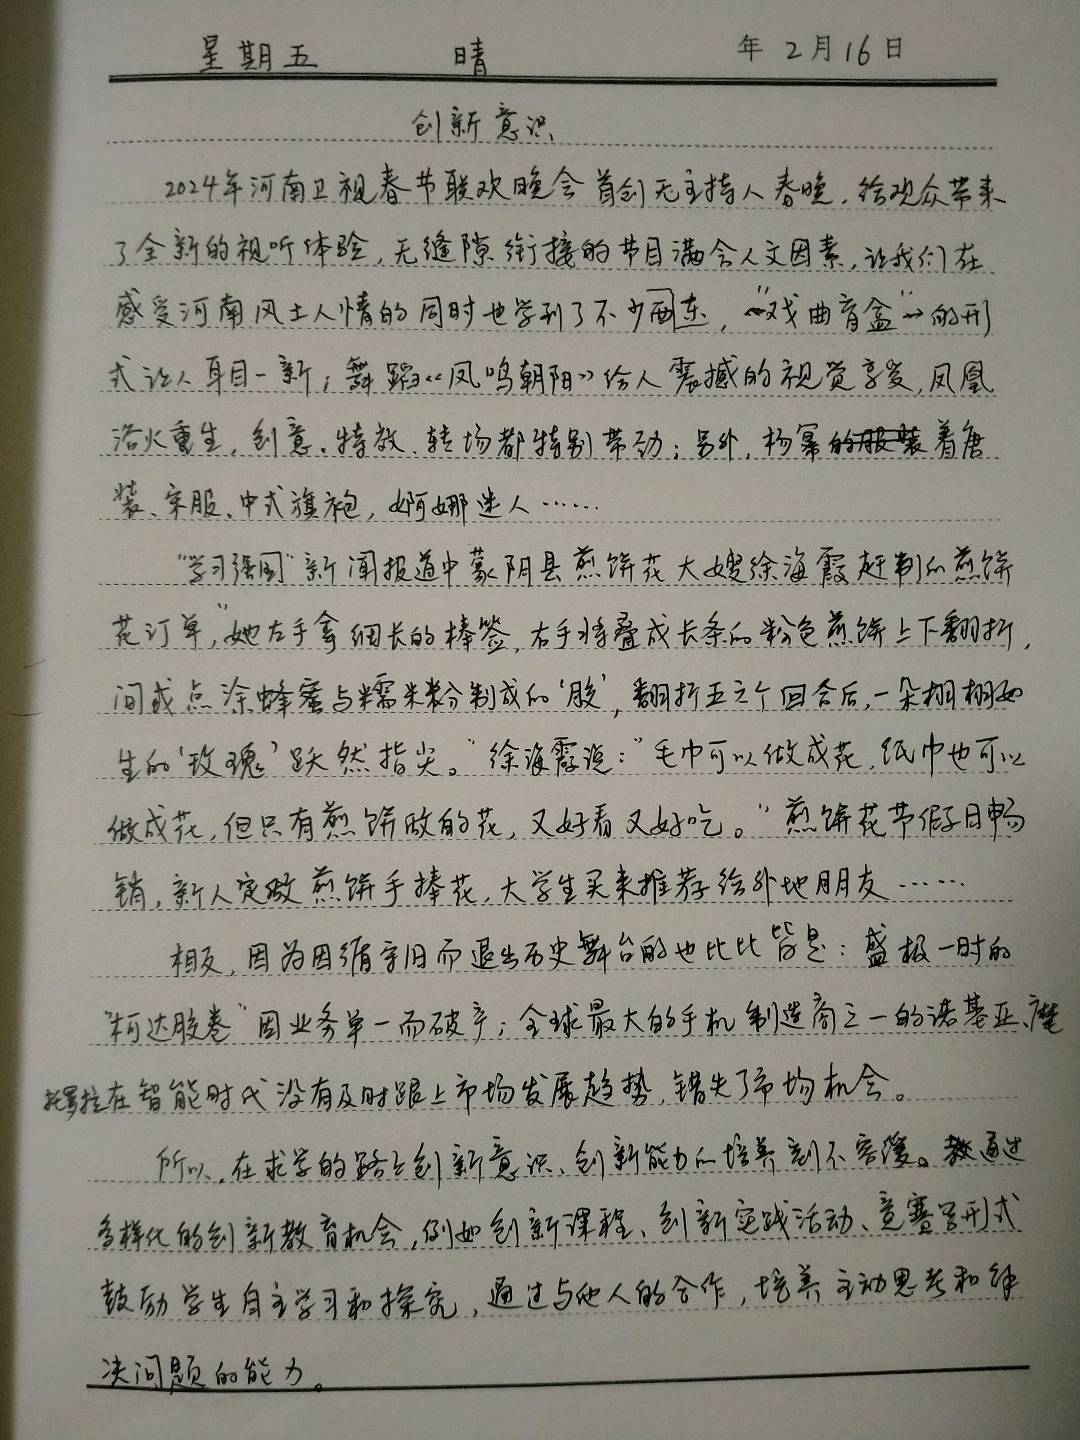 星期五 晴 年2月16日
创新意识
2024年河南卫视春节联欢晚会首创无主持人春晚，给观众带来
了全新的视听体验，无缝隙衔接的节目满含人文因素，让我们在
感受河南风土人情的同时也学到了不少东西，“戏曲盲盒”的形
式让人耳目一新；舞蹈《凤鸣朝阳》给人震撼的视觉享受，凤凰
浴火重生，创意、特效、转场都特别带劲；另外，杨幂着唐
装、宋服、中式旗袍，婀娜迷人……
“学习强国”新闻报道中蒙阴县煎饼花大嫂徐海霞赶制的煎饼
花订单，“她左手拿细长的棒签，右手将叠成长条的粉色煎饼上下翻折，
间或点涂蜂蜜与糯米粉制成的‘胶’，翻折五六个回合后，一朵栩栩如
生的‘玫瑰’跃然指尖。”徐海霞说：“毛巾可以做成花，纸巾也可以
做成花，但只有煎饼做的花，又好看又好吃。”煎饼花节假日畅
销，新人定做煎饼手捧花，大学生买来推荐给外地朋友……
相反，因为因循守旧而退出历史舞台的也比比皆是：盛极一时的
“柯达胶卷”因业务单一而破产；全球最大的手机制造商之一的诺基亚、摩
托罗拉在智能时代没有及时跟上市场发展趋势，错失了市场机会。
所以，在求学的路上创新意识、创新能力的培养刻不容缓。通过
多样化的创新教育机会，例如创新课程、创新实践活动、竞赛等形式
鼓励学生自主学习和探究，通过与他人的合作，培养主动思考和解
决问题的能力。